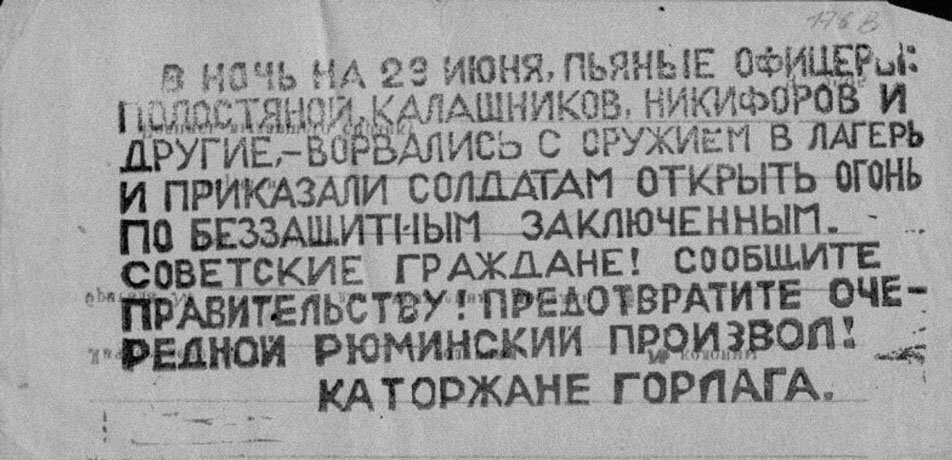 176 В
В НОЧЬ НА 29 ИЮНЯ, ПЬЯНЫЕ ОФИЦЕРЫ:
ПОЛОСТЯНОЙ, КАЛАШНИКОВ, НИКИФОРОВ И
ДРУГИЕ,–ВОРВАЛИСЬ С ОРУЖИЕМ В ЛАГЕРЬ
И ПРИКАЗАЛИ СОЛДАТАМ ОТКРЫТЬ ОГОНЬ
ПО БЕЗЗАЩИТНЫМ ЗАКЛЮЧЕННЫМ.
СОВЕТСКИЕ ГРАЖДАНЕ! СООБЩИТЕ
ПРАВИТЕЛЬСТВУ! ПРЕДОТВРАТИТЕ ОЧЕ–
РЕДНОЙ РЮМИНСКИЙ ПРОИЗВОЛ!
КАТОРЖАНЕ ГОРЛАГА.